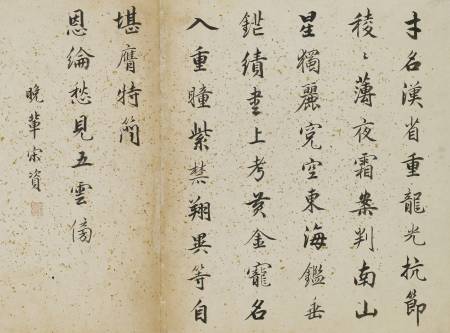 才名漢省重龍光抗節
稜〻薄夜霜案判南山
星獨麗寃空東海鑑垂
鋩績書上考黄金寵名
入重瞳紫禁翔異等自
堪膺特簡
恩綸愁見五雲傍
晚輩宋資